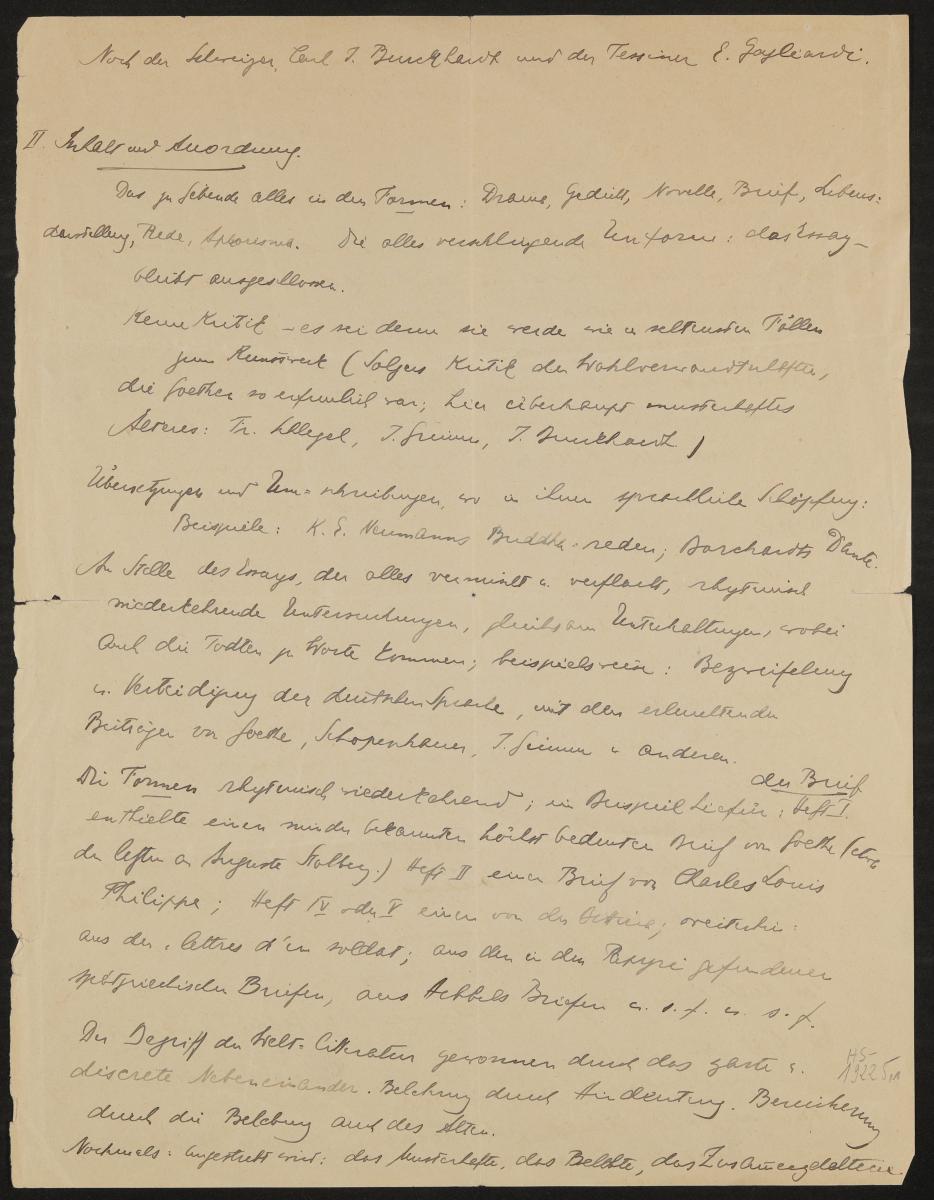 Noch der Schweizer, Carl J. Burckhardt und der Tessiner E. Gagliardi.
II. Inhalt und Anordnung.
Das zu Gebende alles in den Formen: Drama, Gedicht, Novelle, Brief, Lebens=
darstellung, Rede, Aphorisma. Die alles verschlingende Unform: das Essay –
bleibt ausgeschlossen.
Keine Kritik – es sei denn sie werde wie in seltensten Fällen
zum Kunstwerk (Solgers Kritik der Wahlverwandtschaften,
die Goethen so erfreulich war; hier überhaupt musterhaftes
Älteres: Fr. Schlegel, J. Grimm, J. Burckhardt)
Übersetzungen und Um=schreibungen, wo in ihnen sprachliche Schöpfung:
Beispiele: K. E. Neumanns Buddha-reden; Borchardts Dante.
An Stelle des Essays, der alles vermischt u. verflacht, rhytmisch
wiederkehrende Untersuchungen, gleichsam Unterhaltungen, wobei
auch die Todten zu Worte kommen; beispielsweise: Bezweifelung
u. Verteidigung der deutschen Sprache, mit den erleuchtenden
Beiträgen von Goethe, Schopenhauer, J. Grimm u anderen.
Die Formen rhytmisch wiederkehrend; ein Beispiel hiefür: der Brief Heft I.
enthielte einen minder bekannten höchst bedeutenden Brief von Goethe (etwa
den letzten an Auguste Stolberg.) Heft II einen Brief von Charles Louis
Philippe; Heft IV oder V einen von der Bettina; weiterhin:
aus den lettres d'un soldat; aus den in den Papyri gefundenen
spätgriechischen Briefen, aus Hebbels Briefen u. s. f. u. s. f.
Der Begriff der Welt=litteratur gewonnen durch das zarte u.
discrete Nebeneinander. Belehrung durch Hindeutung. Bereicherung
durch die Belebung auch des Alten.
Nochmals: angestrebt wird: das Musterhafte, das Belebte, das
HS-
1922